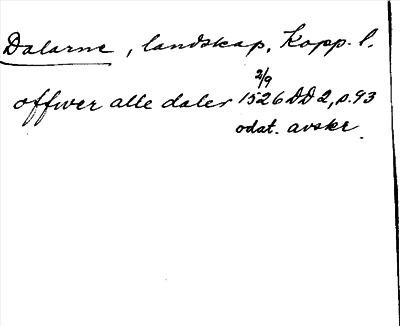 Dalarne, landskap, Kopp. l.
2/9
offwer alle daler 1526 DD 2, s. 93
odat. avskr.